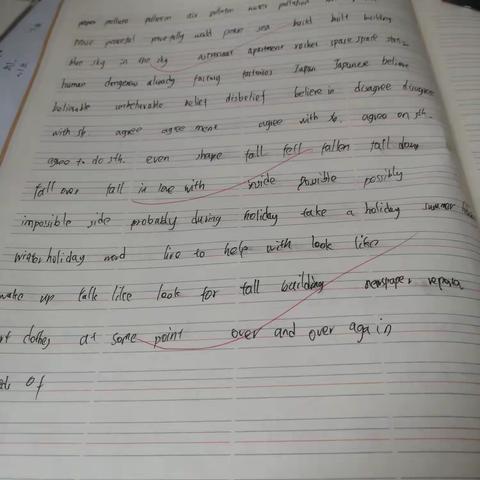 paper pollute pollution air pollution water pollution
peace peaceful peacefully world peace sea build built building
blue sky in the sky astronaut apartment rocket space space station
human dangerous already factory factories Japan Japanese believe
believable unbelievable belief disbelief believe in disagree disagree
with sb. agree agreement agree with sb. agree on sth.
agree to do sth. even shape fall fell fallen fall down
fall over fall in love with inside possible possibly
impossible side probably during holiday take a holiday summer
winter holiday word live to help with look like
wake up talk like look for tall building newspaper
clothes at some point over and over again
of